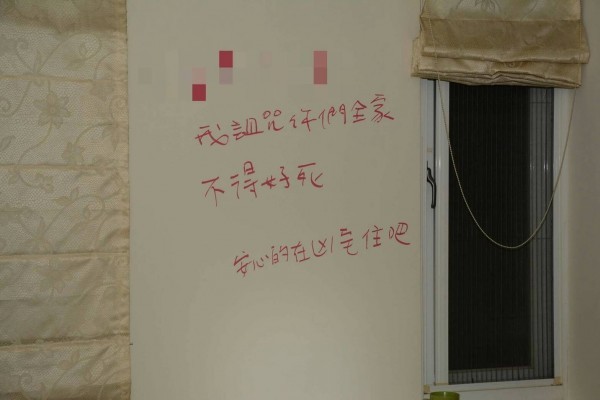 我詛咒你們全家
不得好死
安心的在凶宅住吧